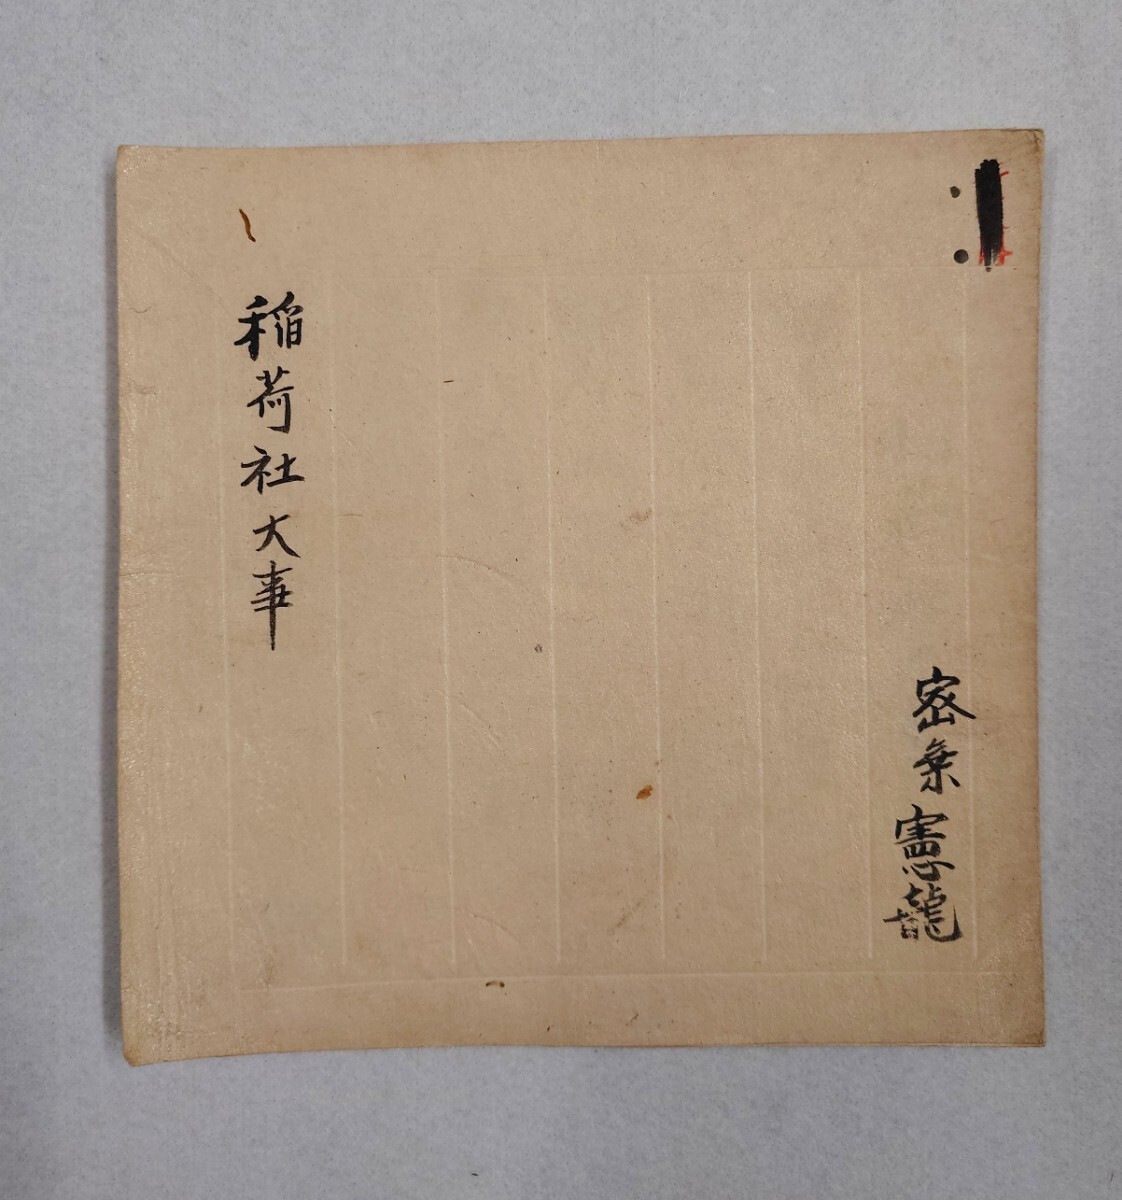 密乗憲龍
稲荷社大事